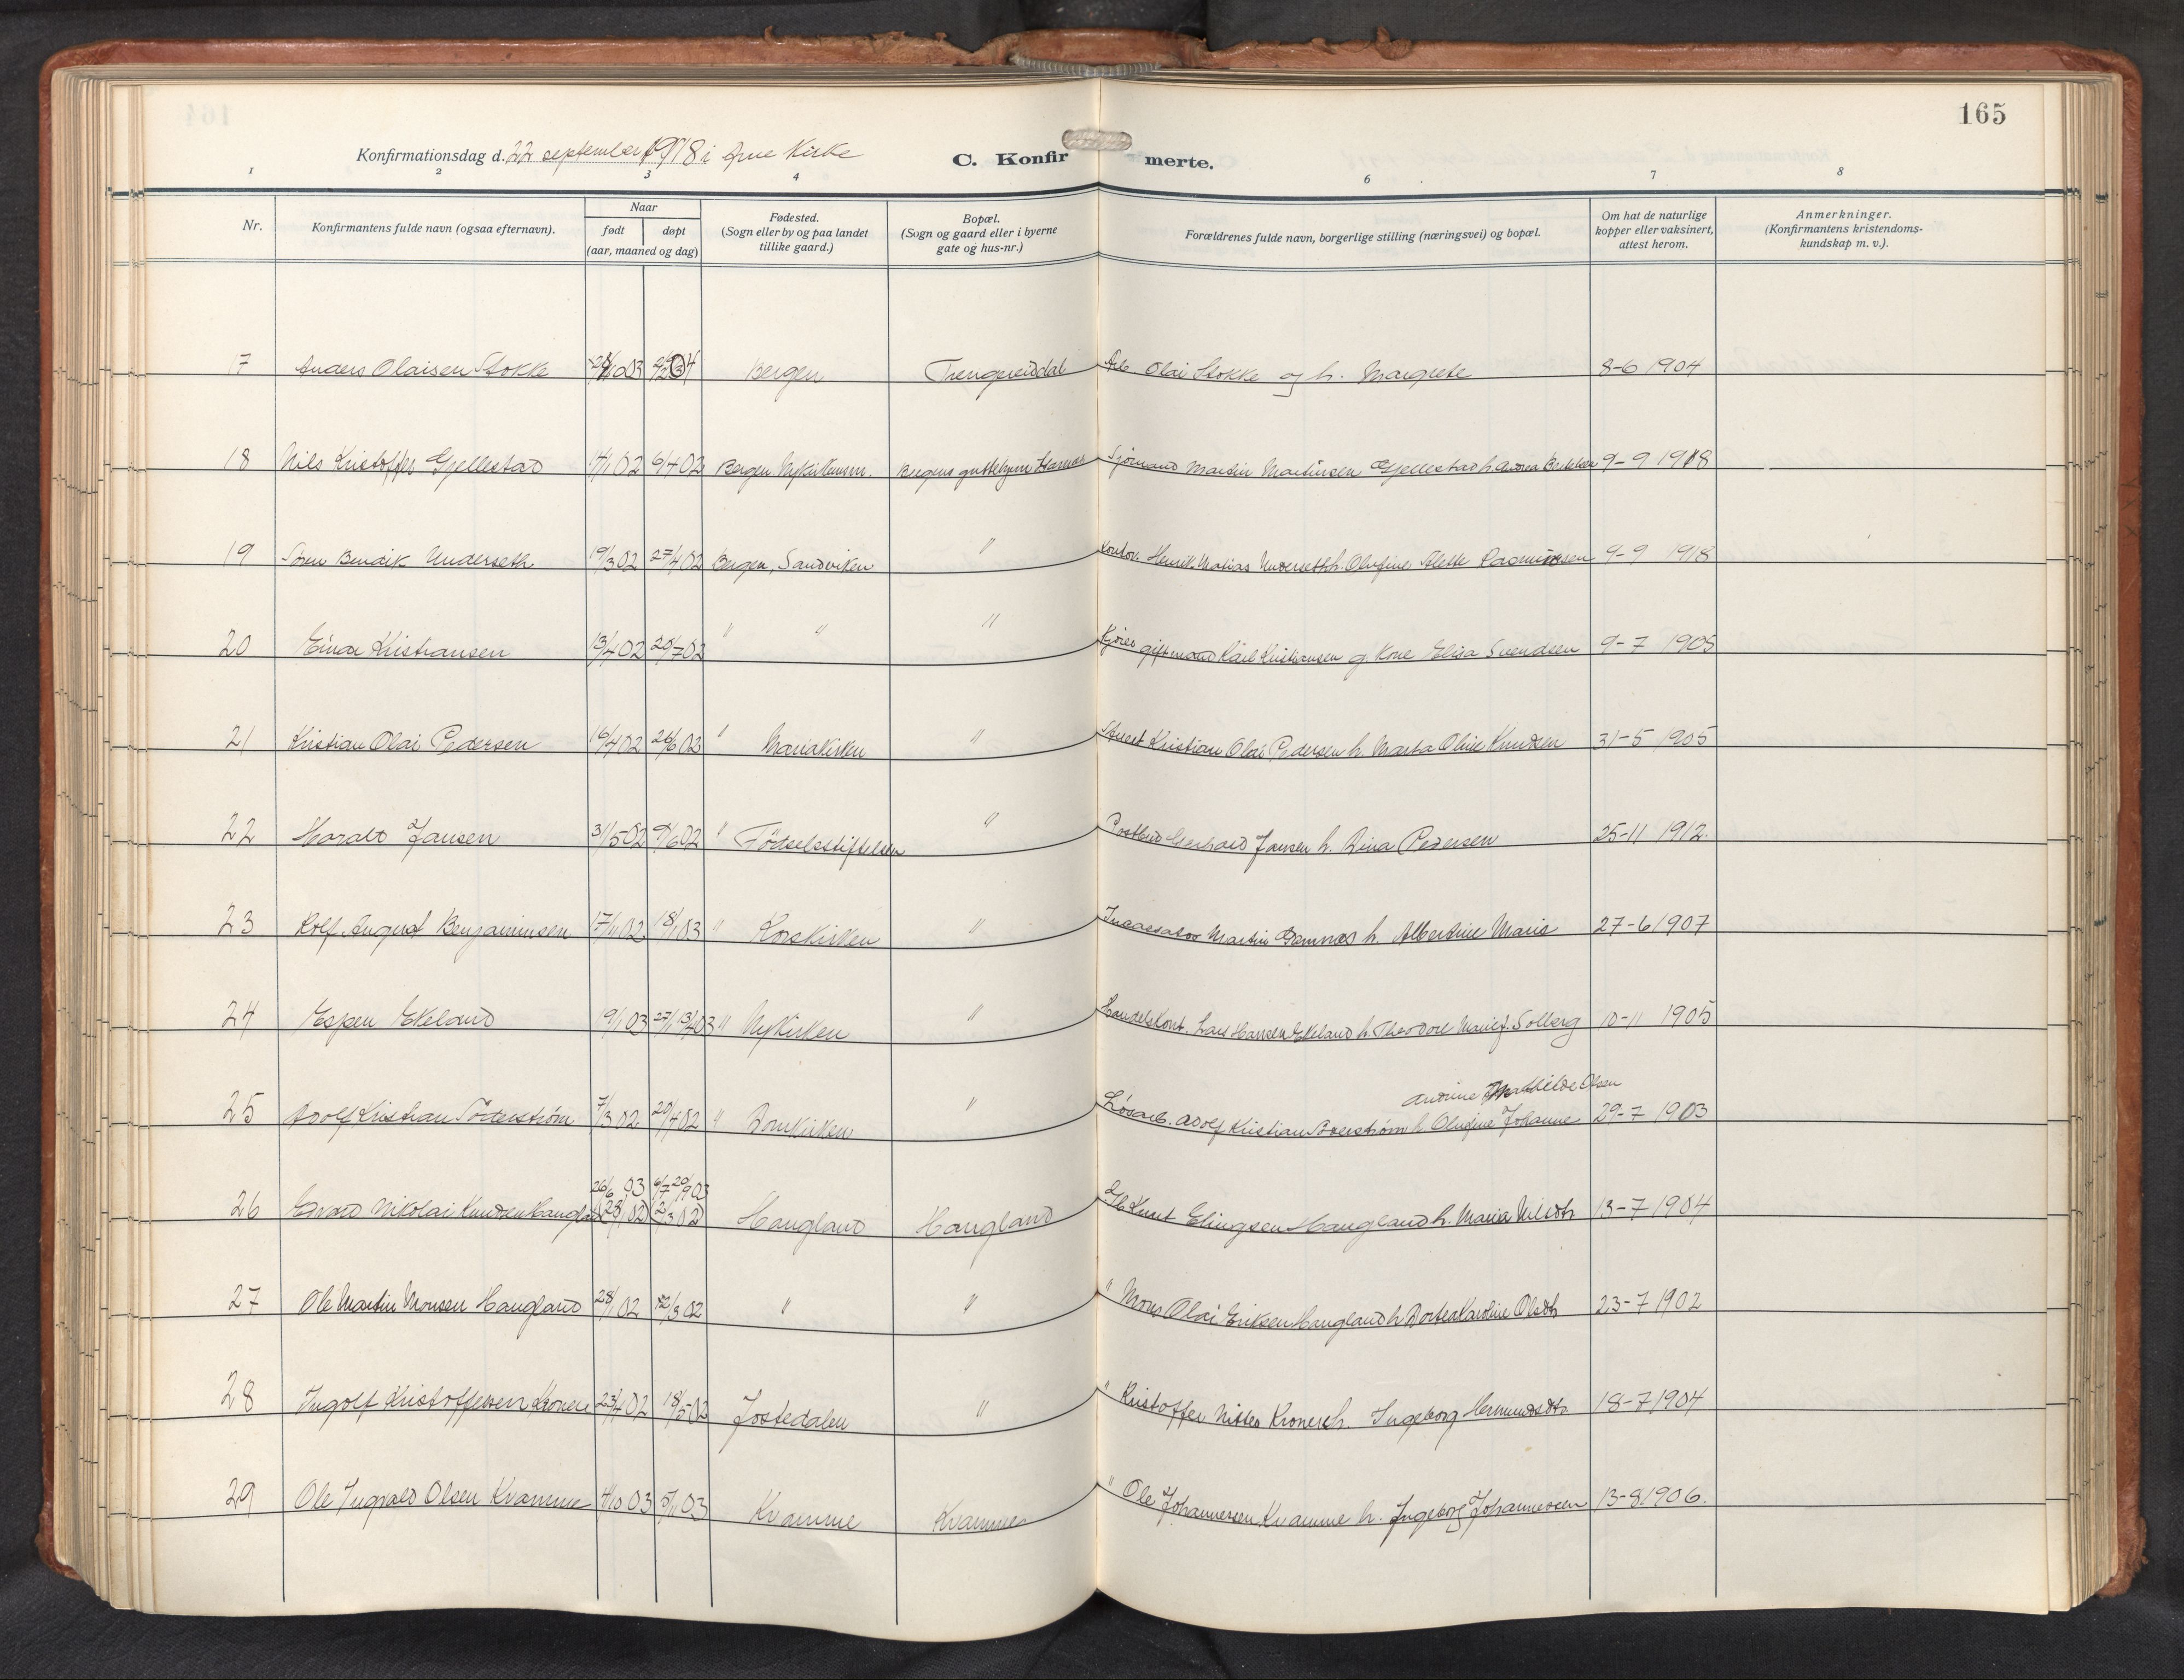 165
Konfirmationsdag d. 22 september 1918 i Arne Kirke
C. Konfirmerte.
1 2 3 4 6 7 8
Nr.
Konfirmantens fulde navn (ogsaa efternavn).
Naar
født døpt
(aar, maaned og dag)
Fødested.
(Sogn eller by og paa landet
tillike gaard.)
Bopæl.
(Sogn og gaard eller i byerne
gate og hus-nr.)
Forældrenes fulde navn, borgerlige stilling (næringsvei) og bopæl.
Om hat de naturlige
kopper eller vaksinert,
attest herom.
Anmerkninger.
(Konfirmantens kristendoms-
kundskap m. v.).
17 Anders Olaisen Stokke Bergen Trengereiddal Arb. Olai Stokke og h. Margrete 8-6 1904
18 Nils Kristoffer Gjellestad 14/1 02 6/4 02 Bergen, Nykirken Bergens guttehjem Garnes Sjømand Martin Martinsen Gjellestad h. Andrea Bertelsen 9-9 1918
19 Søren Bendik Underseth 19/3 02 27/4 02 Bergen, Sandviken " Kontor. Henrik Matias Underseth h. Olufine Alette Rasmussen 9-9 1918
20 Einar Kristiansen 13/4 02 20/7 02 " " " Kjører gift mand Karl Kristiansen g. Kone Elisa Svendsen 9-7 1905
21 Kristian Olai Pedersen 16/4 02 26/6 02 " Mariakirken " Kristian Olai Pedersen h. Marta Oline Knudsen 31-5 1905
22 Harald Jansen 31/5 02 9/6 02 " Fødselsstiftelsen " Postbud Gerhard Jansen h. Dina Pedersen 25-11 1912.
23 Rolf August Benjaminsen 17/11 02 18/1 03 " Korskirken " Incassator Martin h. Albertine Marie 27-6 1907
24 Espen Ekeland 19/1 03 27/1 13/4 03 " Nykirken " Handelskont. Lars Hansen Ekeland h. Theodore Marie f. Solberg 10-11 1905
Andrine Mathilde Olsen
25 Adolf Kristian Söderstrøm 7/3 02 20/4 02 " Domkirken " Løsarb. Adolf Kristian h. Olufine Johanne 29-7 1903
26/6 03 6/7 20/9 03
26 Edvard Nikolai Knudsen Haugland (28/1 02) (2/3 02) Haugland Haugland Knut Elingsen Haugland h. Maria Nilsdtr 13-7 1904
27 Ole Martin Monsen Haugland 28/1 02 2/3 02 " " " Mons Olai Eriksen Haugland h. Dortea Karoline Olsdtr 23-7 1902
28 Ingolf Kristoffersen Kronen 23/4 02 18/5 02 Jostedalen " " Kristoffer Nilsen Kronen h. Ingeborg Hermundsdtr 18-7 1904
29 Ole Ingvald Olsen Kvamme 4/10 03 5/11 03 Kvamme Kvamme " Ole Johannessen Kvamme h. Ingeborg Johannessen 13-8 1906.